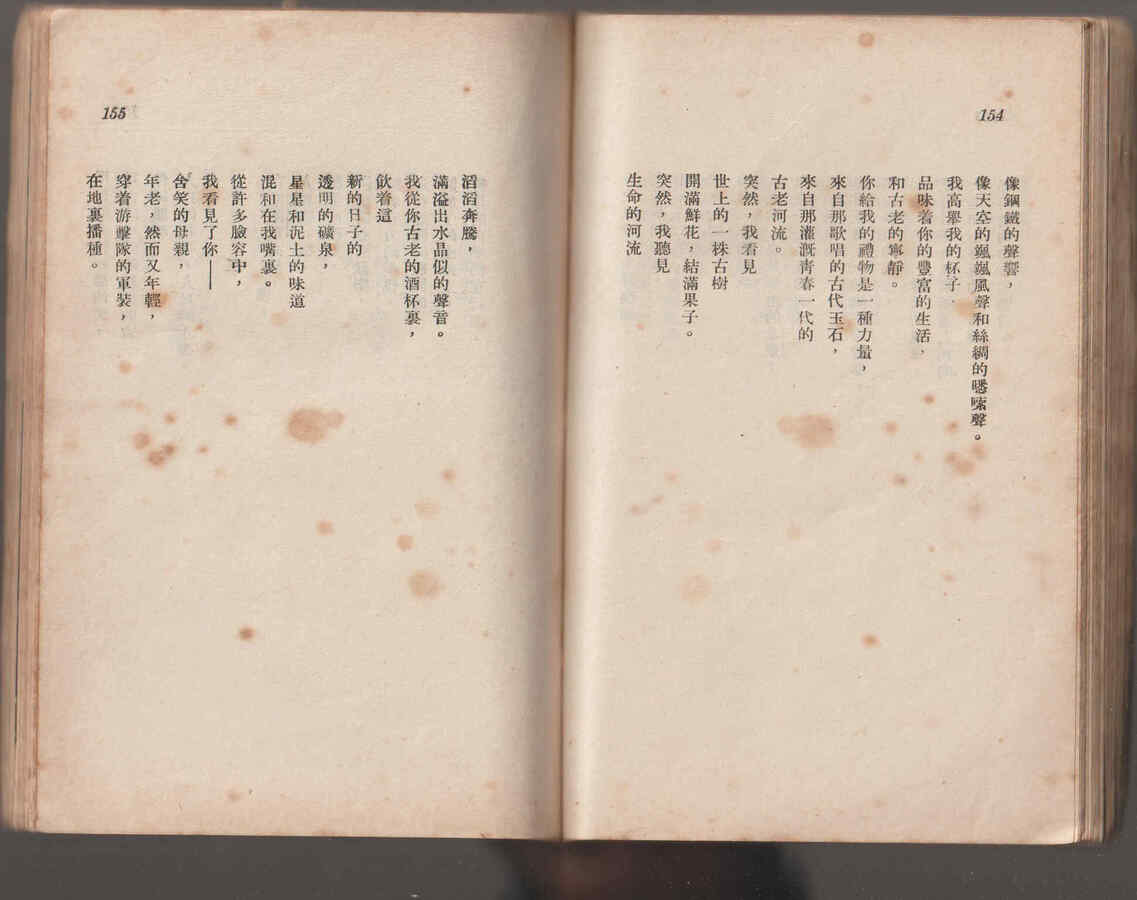 154
像鋼鐵的聲響，
像天空的颯颯風聲和絲綢的噿嗦聲。
我高舉我的杯子，
品味着你的豐富的生活，
和古老的寧靜。
你給我的禮物是一種力量，
來自那歌唱的古代玉石，
來自那灌溉靑春一代的
古老河流。
突然，我看見
世上的一株古樹
開滿鮮花，結滿果子。
突然，我聽見
生命的河流
155
滔滔奔騰，
滿溢出水晶似的聲音。
我從你古老的酒杯裏，
飲着這
新的日子的
透明的礦泉，
星星和泥土的味道
混和在我嘴裏。
從許多臉容中，
我看見了你——
含笑的母親，
年老，然而又年輕，
穿着游擊隊的軍裝，
在地裏播種。